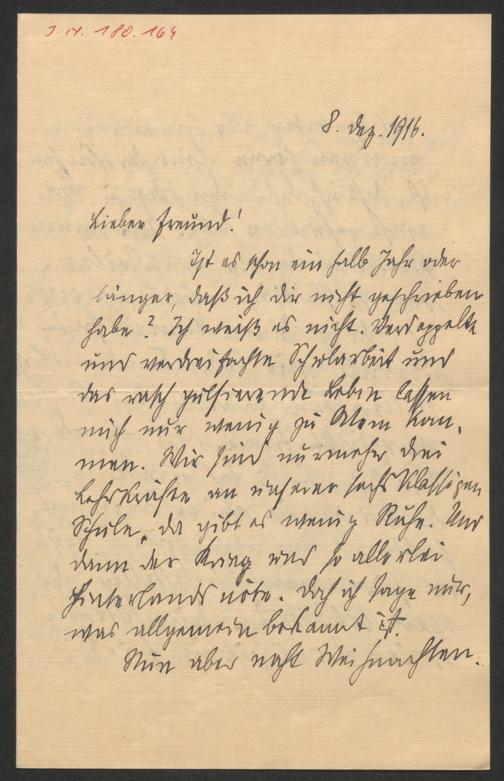 J. N. 180.164
8. Dez. 1916.
Lieber Freund!
Ist es schon ein halb Jahr oder
länger, daß ich dir nicht geschrieben
habe? Ich weiß es nicht. Verdoppelte
und verdreifachte Schularbeit und
das rasch pulsierende Leben lassen
mich nur wenig zu Atem kom-
men. Wir sind nurmehr drei
Lehrkräfte an unserer sechsklassigen
Schule, da gibt es wenig Ruhe. Und
dann der Krieg und so allerlei
Hinterlandsnöte. Doch ich sage nur,
was allgemein bekannt ist.
Nun aber naht Weihnachten.